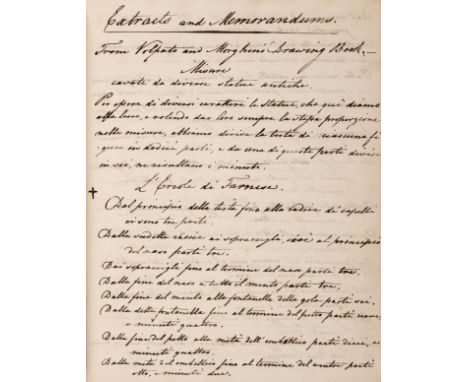 Extracts and Memorandums.
From Volpato and Morghen's Drawing Book,—
Misure
cavate da diverse statue antiche.
Per essere di diversi caratteri le statue, che quì diamo
alla luce, e volendo dar loro sempre la stessa proporzione
nelle misure, abbiamo divisa la testa di ciascuna fi-
gura in dodici parti, e da una di queste parti divisa
in sei, ne risultano i minuti.
L'Ercole di Farnese.
†
Dal principio della testa fino alla radice de' capelli
vi sono tre parti.
Dalla sudetta radice ai sopracigli, cioè al principio
del naso parti tre.
Dai sopracigli fino al termine del naso parti tre.
Dalla fine del naso a tutto il mento parti tre.
Dalla fine del mento alla fontanella della gola parti sei.
Dalla detta fontanella fino al termine del petto parti nove,
e minuti quattro.
Dalla fine del petto alla metà dell' ombellico parti dieci, e
minuti quattro.
Dalla metà del ombellico fino al termine del ventre parti
otto, e minuti due.